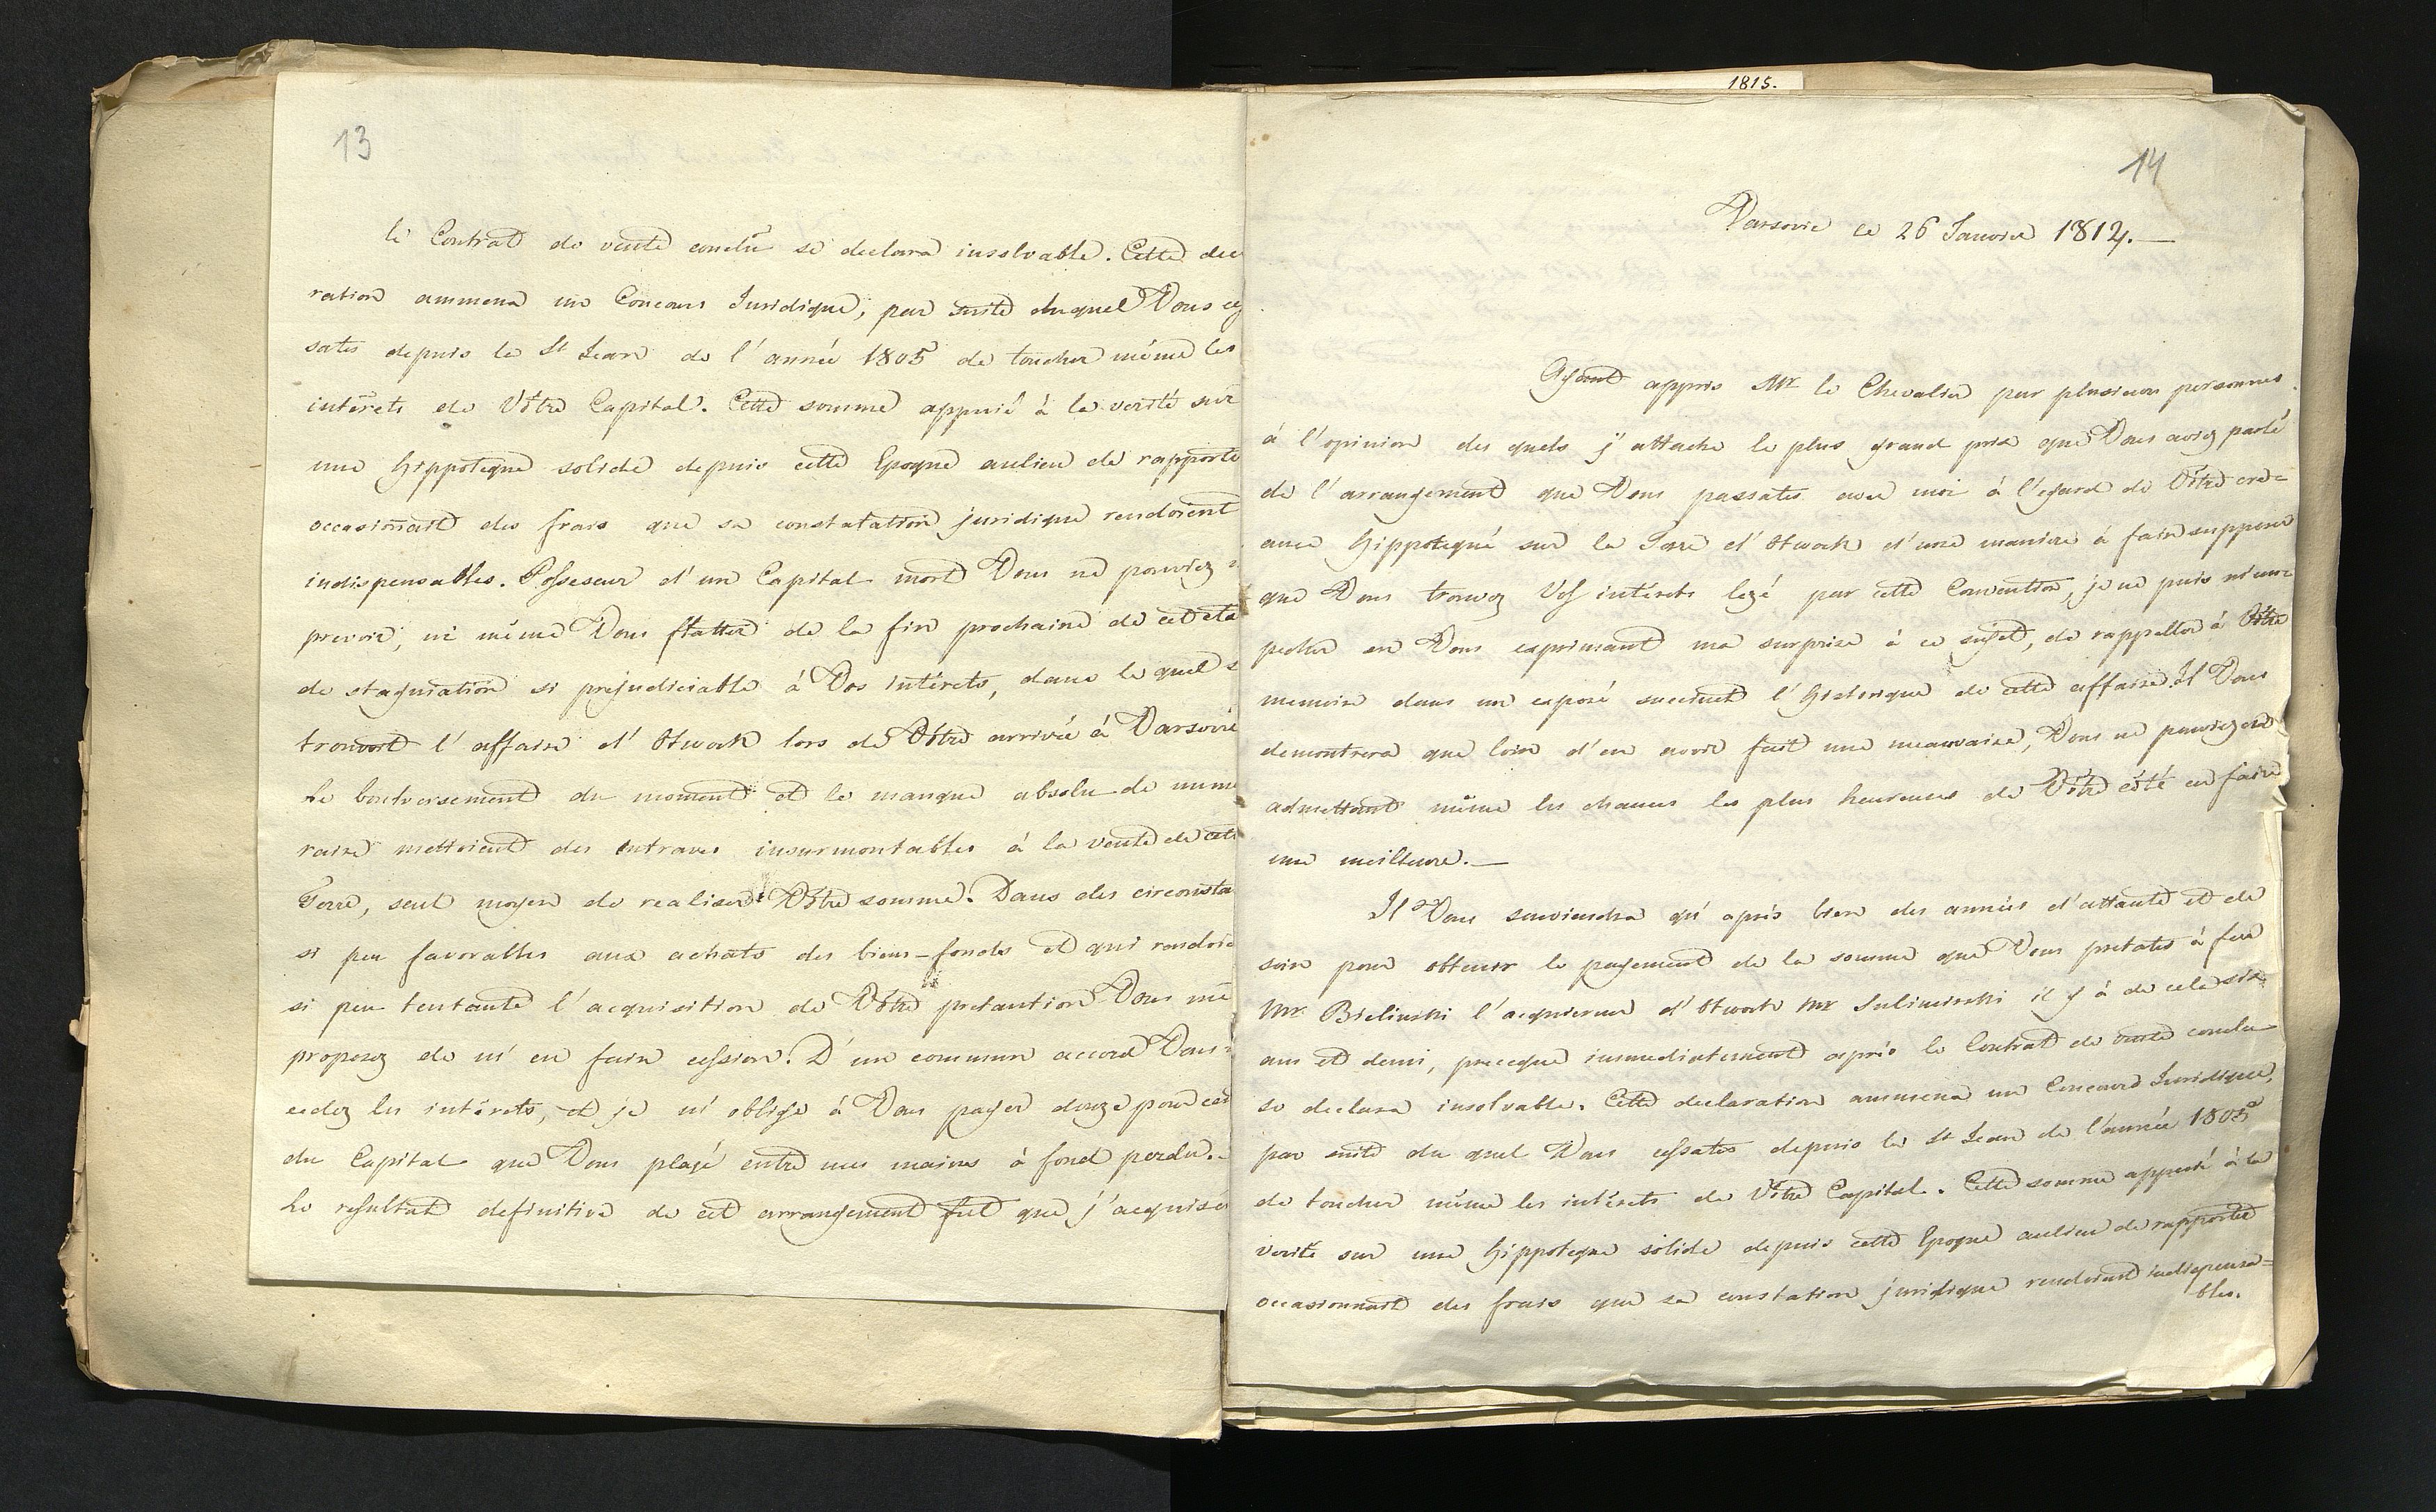 13
le Contrat de vente conclu se declara insolvable. Cette dec
ration ammena un Concours Juridique, par suite duquel Vous ces
sates depuis la St Jean de l'année 1805 de toucher même les
intérets de Vôtre Capital. Cette somme appuié à la verité sur
une hippoteque solide depuis cette Epoque aulieu de rapporte
occasionait des frais que sa constatation juridique rendoient
indispensables. Posseseur d'un Capital mort Vous ne pouviez
prevoir, ni même Vous flatter de la fin prochaine de cet éta
de stagniation si prejudiciable à Vos intérets, dans le quel s
trouvoit l'affaire d'Otwock lors de Vôtre arrivée à Varsovie
Le boulversement du moment et le manque absolu de nume
raire mettoient des entraves insurmontables à la vente de cette
Terre, seul moyen de realiser Vôtre somme. Dans des circonsta
si peu favorables aux achats des biens-fonds et qui rendoie
si peu tentante l'acquisition de Vôtre pretantion Vous me
proposez de m'en faire cession. D'un commun accord Vous
cedez les intérets, et je m'oblige à Vous payer douze pour cen
du Capital que Vous plaçé entre mes mains à fond perdu.
Le resultat definitive de cet arrangement fut que j'acquiser
1815.
14
Varsovie ce 26 Janvier 1812.
Ayant appris Mr. le Chevalier par plusieurs personnes
à l'opinion des quels j'attache le plus grand prix que Vous aviez parlé
de l'arrangement que Vous passates avec moi à l'egard de Vôtre cre=
ance hippotequé sur la Terre d'Otwock d'une maniere à faire supposer
que Vous trouvez Vos intérets lezé par cette Convention, je ne puis m'em=
pecher en Vous exprimant ma surprise à ce sujet, de rappeller à Vôtre
memoire dans un exposé succinct l'historique de cette affaire. Il Vous
demontrera que loin d'en avoir fait une meauvaise, Vous ne pouviez en
admettant même les chances les plus heureuses de Vôtre côté en faire
une meilleure.
Il Vous souviendra qu'après bien des années d'attante et de
soin pour obtenir le payement de la somme que Vous pretates à feu
Mr. Bielinski l'acquiereur d'Otwock Mr Sulimirski il y à de cela six
ans et demi, preceque immediatement après le Contrat de vente conclu
se declara insolvable. Cette declaration ammena un Concours Juridique,
par suite du quel Vous cessates depuis la St Jean de l'année 1805
de toucher même les intérets de Vôtre Capital. Cette somme appuié à la
verité sur une hippoteque solide depuis cette Epoque aulieu de rapporter
occasionnait des frais que sa constation juridique rendoient indispensa=
bles.